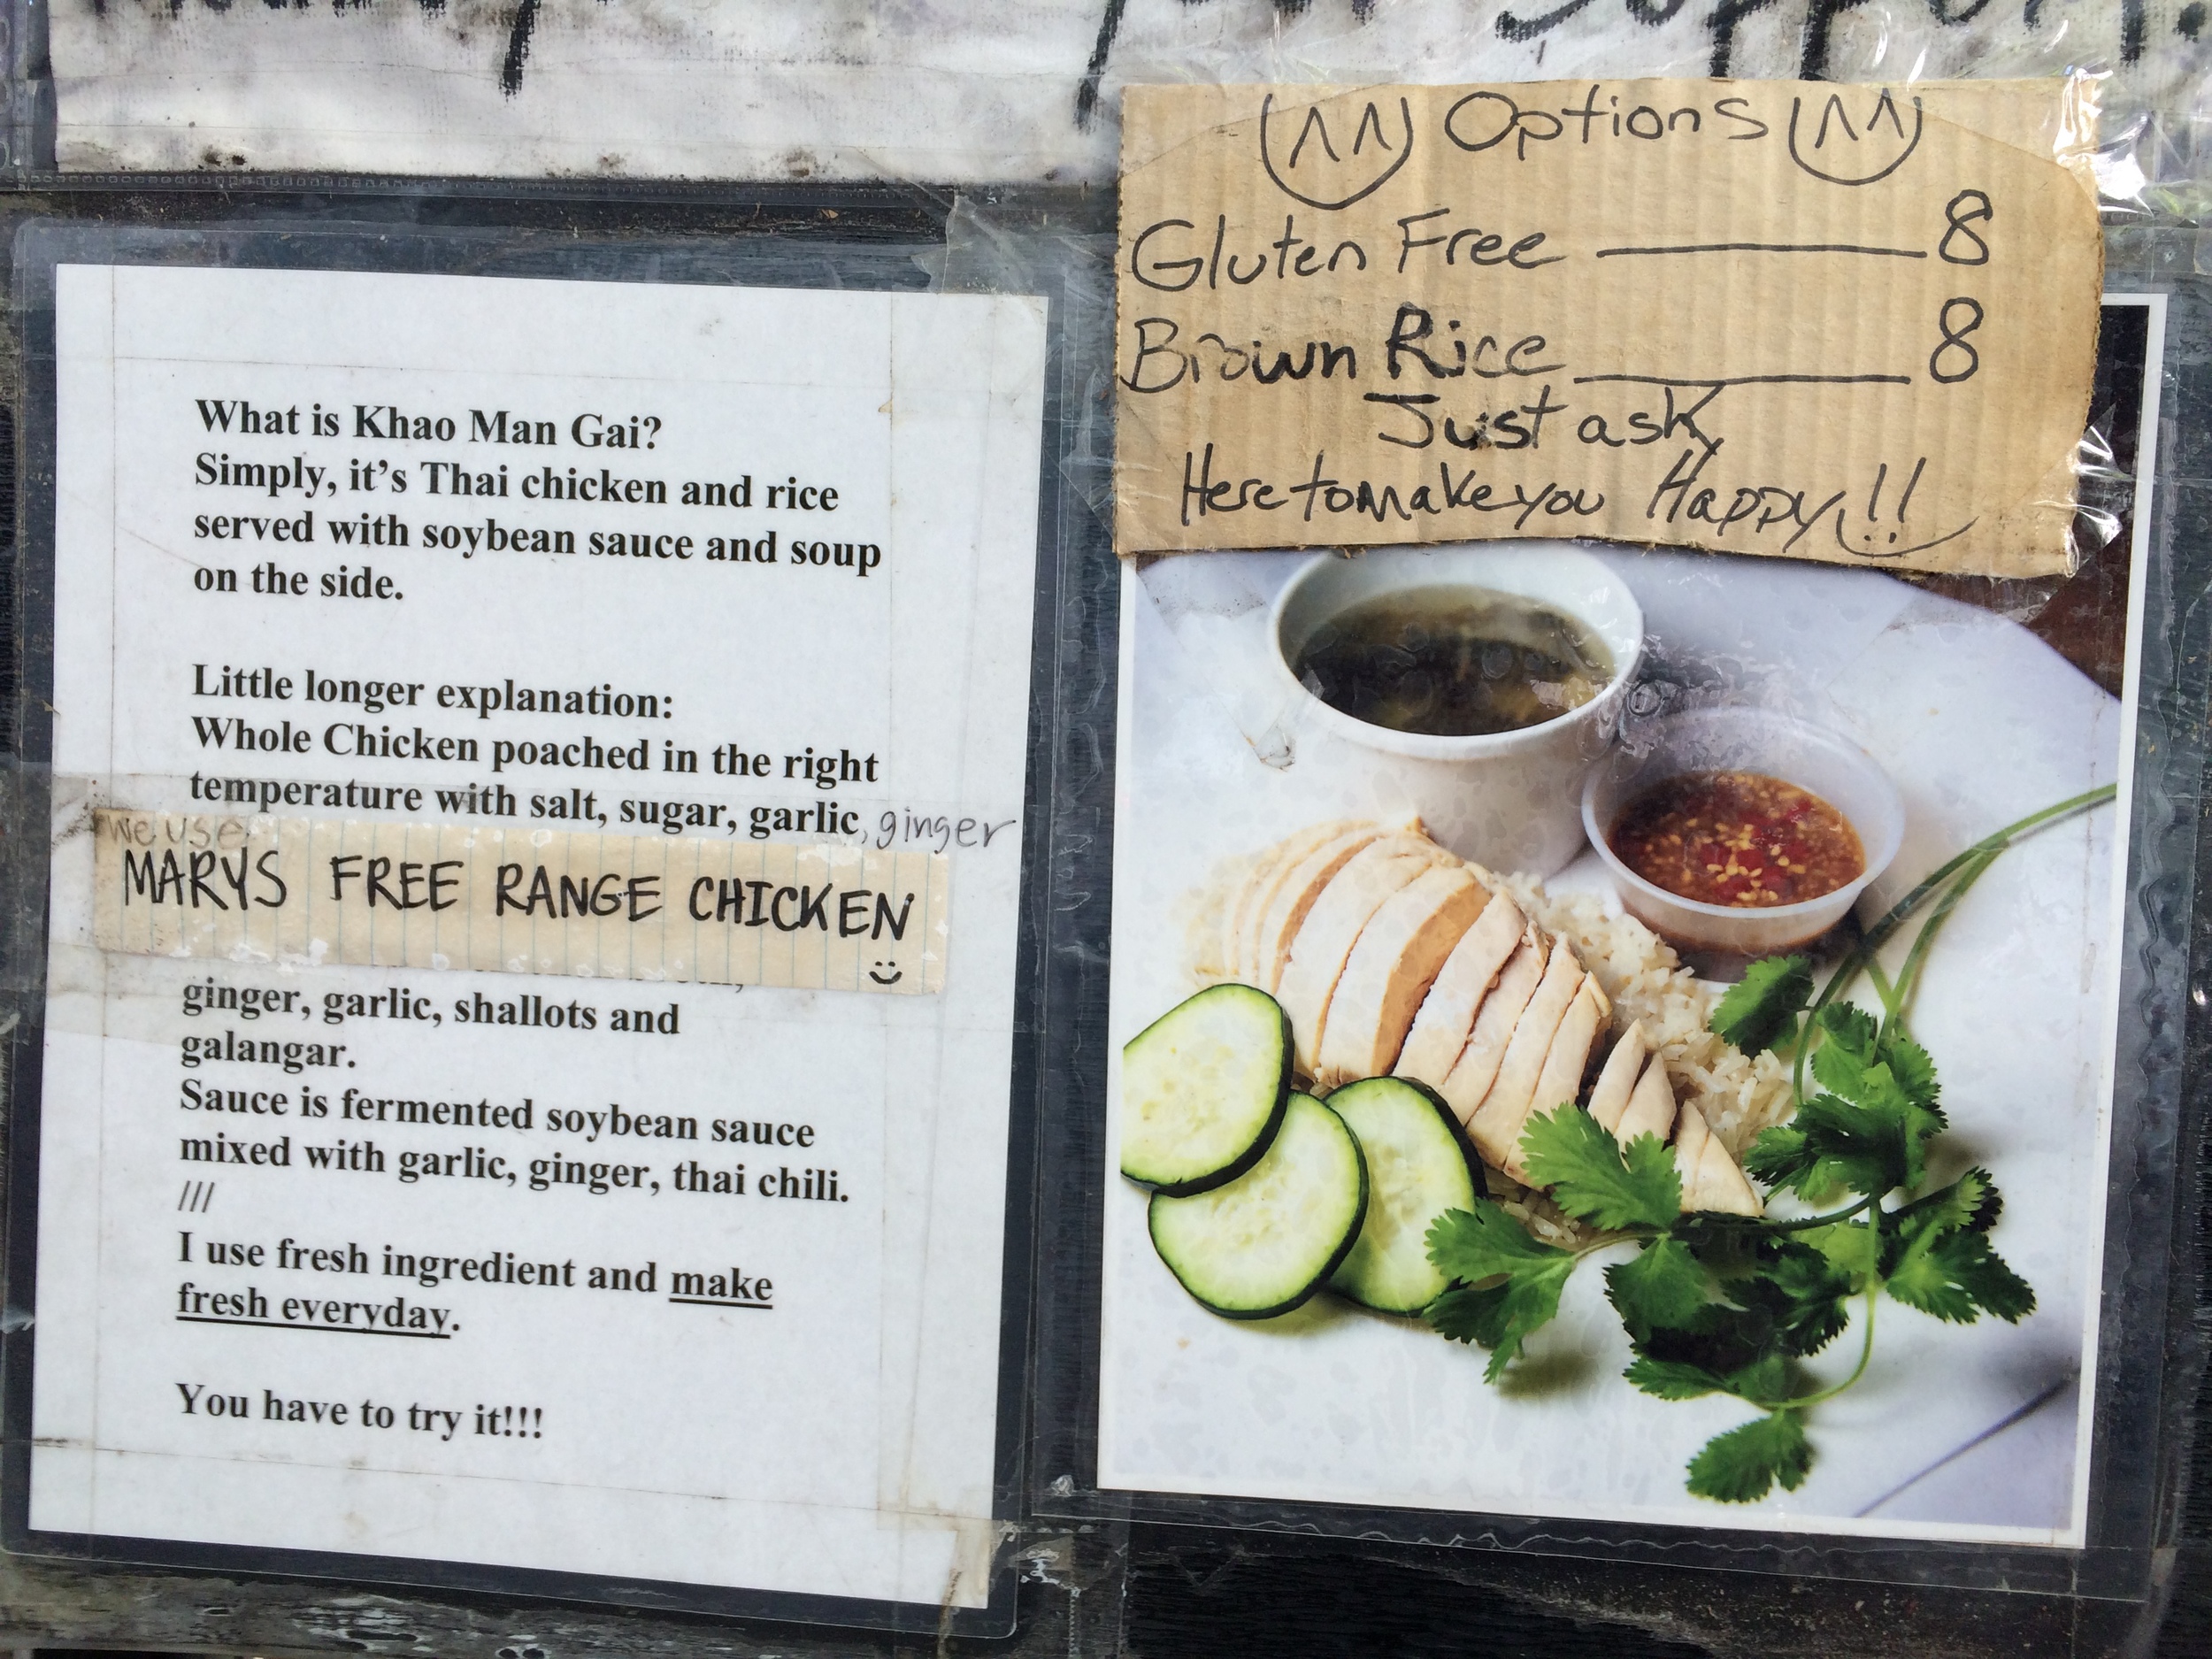 What is Khao Man Gai?
Simply, it's Thai chicken and rice
served with soybean sauce and soup
on the side.
Little longer explanation:
Whole Chicken poached in the right
temperature with salt, sugar, garlic, ginger
We use
MARYS FREE RANGE CHICKEN
ginger, garlic, shallots and
galangar.
Sauce is fermented soybean sauce
mixed with garlic, ginger, thai chili.
///
I use fresh ingredient and make
fresh everyday.
You have to try it!!!
Options
Gluten Free 8
Brown Rice 8
Just ask
Here to make you Happy!!